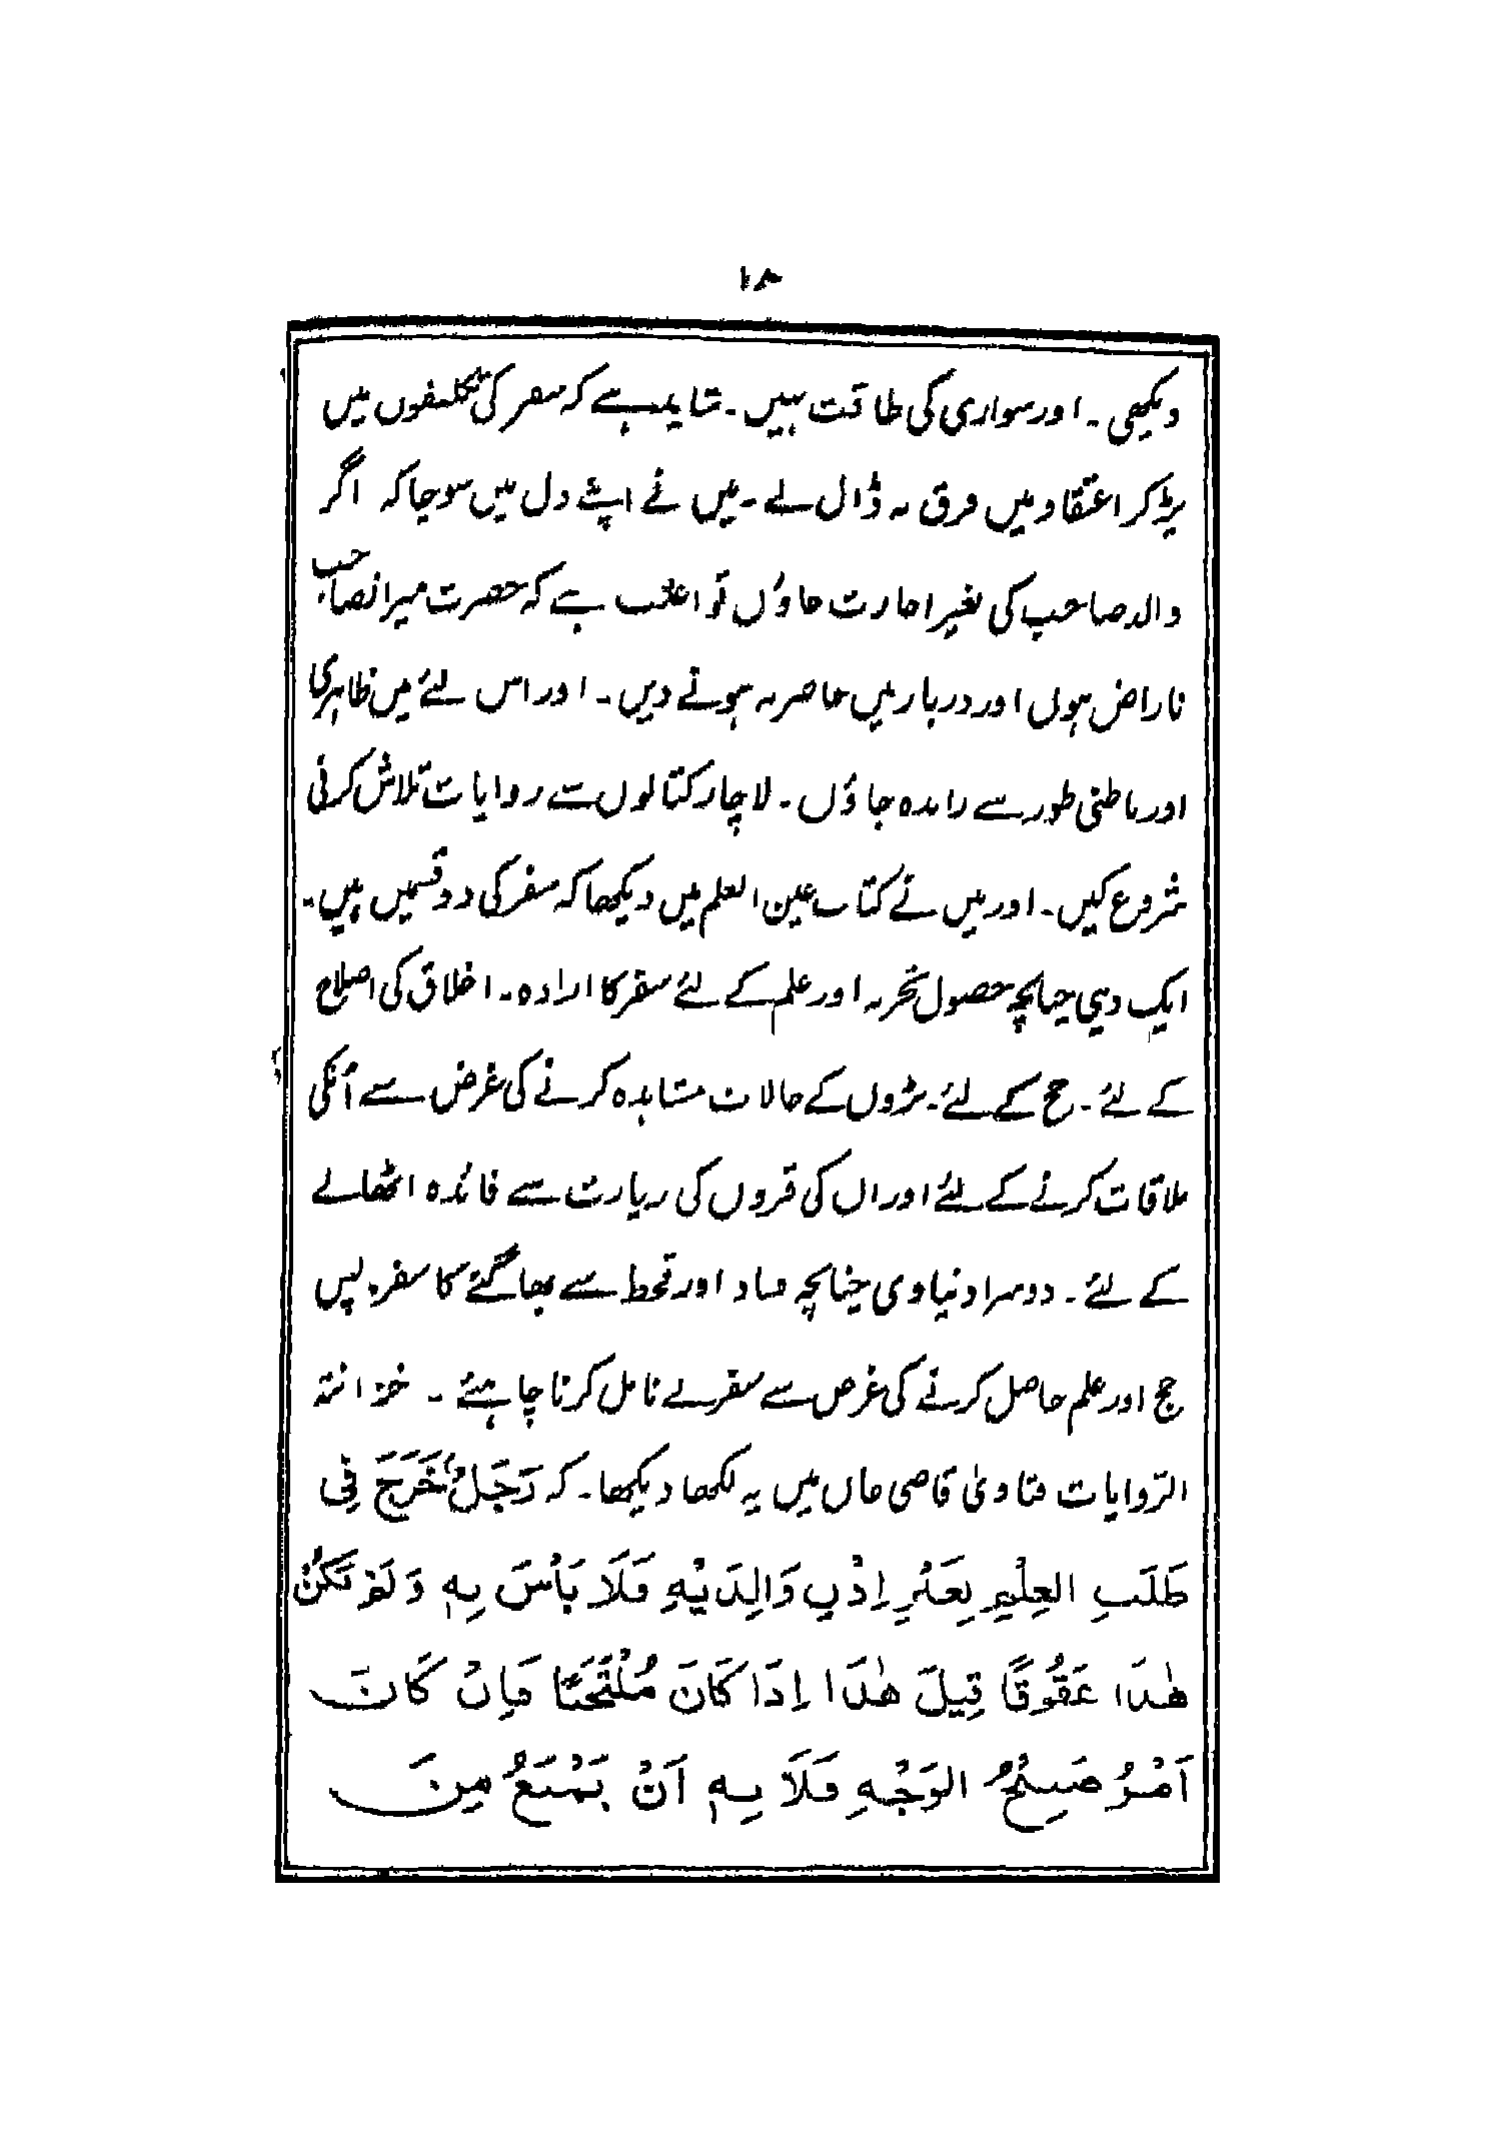 ۱۸
دیکھی ۔ اور سواری کی طاقت نہیں ۔ شاید ہے کہ سفر کی تکلیفوں میں
پڑ کر اعتقاد میں فرق نہ ڈال لے ۔ میں نے اپنے دل میں سوچا کہ اگر
والد صاحب کی بغیر اجازت جاؤں تو اغلب ہے کہ حضرت میرانصاحب
ناراض ہوں اور دربار میں حاضر نہ ہونے دیں ۔ اور اس لئے میں ظاہری
اور باطنی طور سے راندہ جاؤں ۔ لاچار کتابوں سے روایات تلاش کرنی
شروع کیں ۔ اور میں نے کتاب عین العلم میں دیکھا کہ سفر کی دو قسمیں ہیں ۔
ایک دینی چنانچہ حصول تجربہ اور علم کے لئے سفر کا ارادہ ۔ اخلاق کی اصلاح
کے لئے ۔ حج کے لئے ۔ بڑوں کے حالات مشاہدہ کرنے کی غرض سے اُنکی
ملاقات کرنے کے لئے اور ان کی قبروں کی زیارت سے فائدہ اٹھانے
کے لئے ۔ دوسرا دنیاوی چنانچہ فساد اور قحط سے بھاگنے کا سفر ۔ پس
حج اور علم حاصل کرنے کی غرض سے سفر بے تامل کرنا چاہئے ۔ خزانتہ
الرّوایات فتاویٰ قاضی خاں میں یہ لکھا دیکھا ۔ کہ رَجُلٌ خَرَجَ فِی
طَلَبِ العِلْمِ بِغَیْرِ اِذْنِ وَالِدَیْهِ فَلَا بَأْسَ بِهٖ وَلَمْ تَکُنْ
هٰذَا عَقُوقًا قِیلَ هٰذَا اِذَا کَانَ مُلْتَحِیًا فَاِنْ کَانَ
اَمْرَدُ صَبِیْحُ الوَجْهِ فَلِاَبِیهِ اَنْ یَمْنَعُ مِنَ